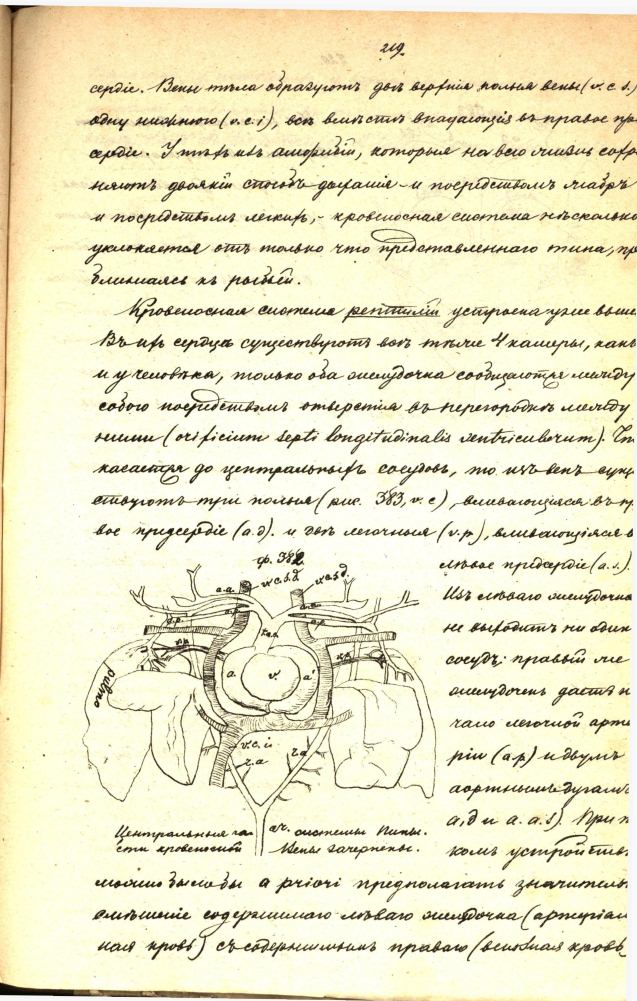 219
сердіе. Вены тѣла образуютъ двѣ верхнія полыя вены (v. c. s.)
одну нижнюю (v. c. i), всѣ вмѣстѣ впадающія въ правое пр
сердіе. У тѣхъ изъ амфибій, которыя на всю жизнь сохра
няютъ двоякій способъ дыханія – и посредствомъ жабръ
и посредствомъ легкихъ, – кровеносная система нѣсколько
уклоняется отъ только что представленнаго типа, пр
ближаясь къ рыбьей.
Кровеносная система рептилій устроена уже выше
Въ ихъ сердцѣ существуютъ всѣ тѣже 4 камеры, какъ
и у человѣка, только оба желудочка сообщаются между
собою посредствомъ отверстія въ перегородкѣ между
ними (orificium septi longitudinalis ventriculorum). Что
касается до центральныхъ сосудовъ, то изъ венъ суще
ствуютъ три полыя (рис. 383, v. c), вливающіяся въ пр
вое предсердіе (a. d). и двѣ легочныя (v. p), вливающіяся в
лѣвое предсердіе (a. s).
Изъ лѣваго желудочка
не выходитъ ни один
сосудъ; правый же
желудочекъ даетъ н
чало легочной арте
ріи (a. p) и двумъ
аортнымъ дугамъ
a, d и a. a. s). При т
комъ устройствѣ
ф. 382
v. c. s. d
v. c. s. d.
a. a.
a. a.
a. p.
a. p.
v. p.
v. p.
a.
v.
a'
v. c. i
r. a
r. a
pulmo
Центральныя ча
сти кровеносной
системы Пипы.
Вены зачернены.
можно было бы a priori предполагать значитель
смѣшеніе содержимаго лѣваго желудочка (артеріал
ная кровь) съ содержимымъ праваго (венозная кровь